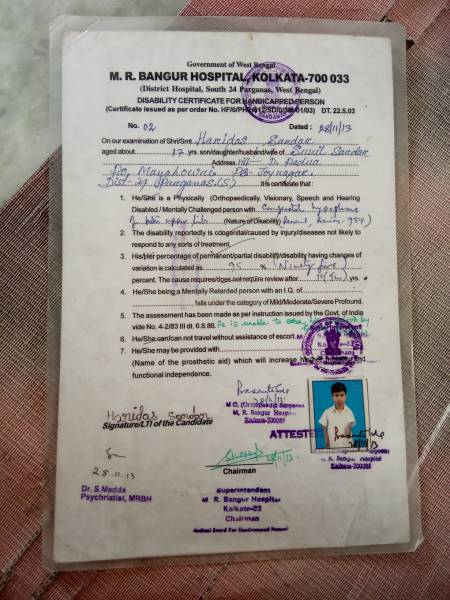 Government of West Bengal
M. R. BANGUR HOSPITAL, KOLKATA-700 033
(District Hospital, South 24 Parganas, West Bengal)
DISABILITY CERTIFICATE FOR HANDICAPPED PERSON
(Certificate issued as per order No. DT. 22.5.03
No. 02 Dated : 28/11/13
On our examination of Shri/Smt. Haridas Sardar
aged about 17 yrs. son/daughter/husband/wife of Sunil Sardar
Address Vill-
PO, PS- Joynagar,
Dist- 24 Parganas (S) It is certificate that :
1. He/She is a Physically (Orthopaedically, Visionary, Speech and Hearing
Disabled / Mentally Challenged person with Congenital
(Nature of Disability)
2. The disability reportedly is congenital/caused by injury/diseases not likely to
respond to any sorts of treatment.
3. His/Her percentage of permanent/partial disability/disability having changes of
variation is calculated as 95 % (Ninety five)
percent. The cause requires/does not require review after 10 (Ten) yrs.
4. He/She being a Mentally Retarded person with an I.Q. of
falls under the category of Mild/Moderate/Severe Profound.
5. The assessment has been made as per instruction issued by the Govt. of India
vide No. 4-2/83 III dt. 6.8.86. He is unable to
6. He/She can/can not travel without assistance of escort.
7. He/She may be provided with
(Name of the prosthetic aid) which will increase his/her and
functional independence.
28/11/13
M.O, (Orthopaedic Surgeon)
M. R. Bangur Hospital
Kolkata-700033
Haridas Sardar
Signature/LTI of the Candidate
ATTESTED
28/11/13
M. R. Bangur Hospital
Kolkata-700033
28/11/13
Chairman
28.11.13
Dr. S. Medda
Psychriatist, MRBH
Superintendent
M R. Bangur Hospital
Kolkata-33
Chairman
Medical Board For Handicapped Person